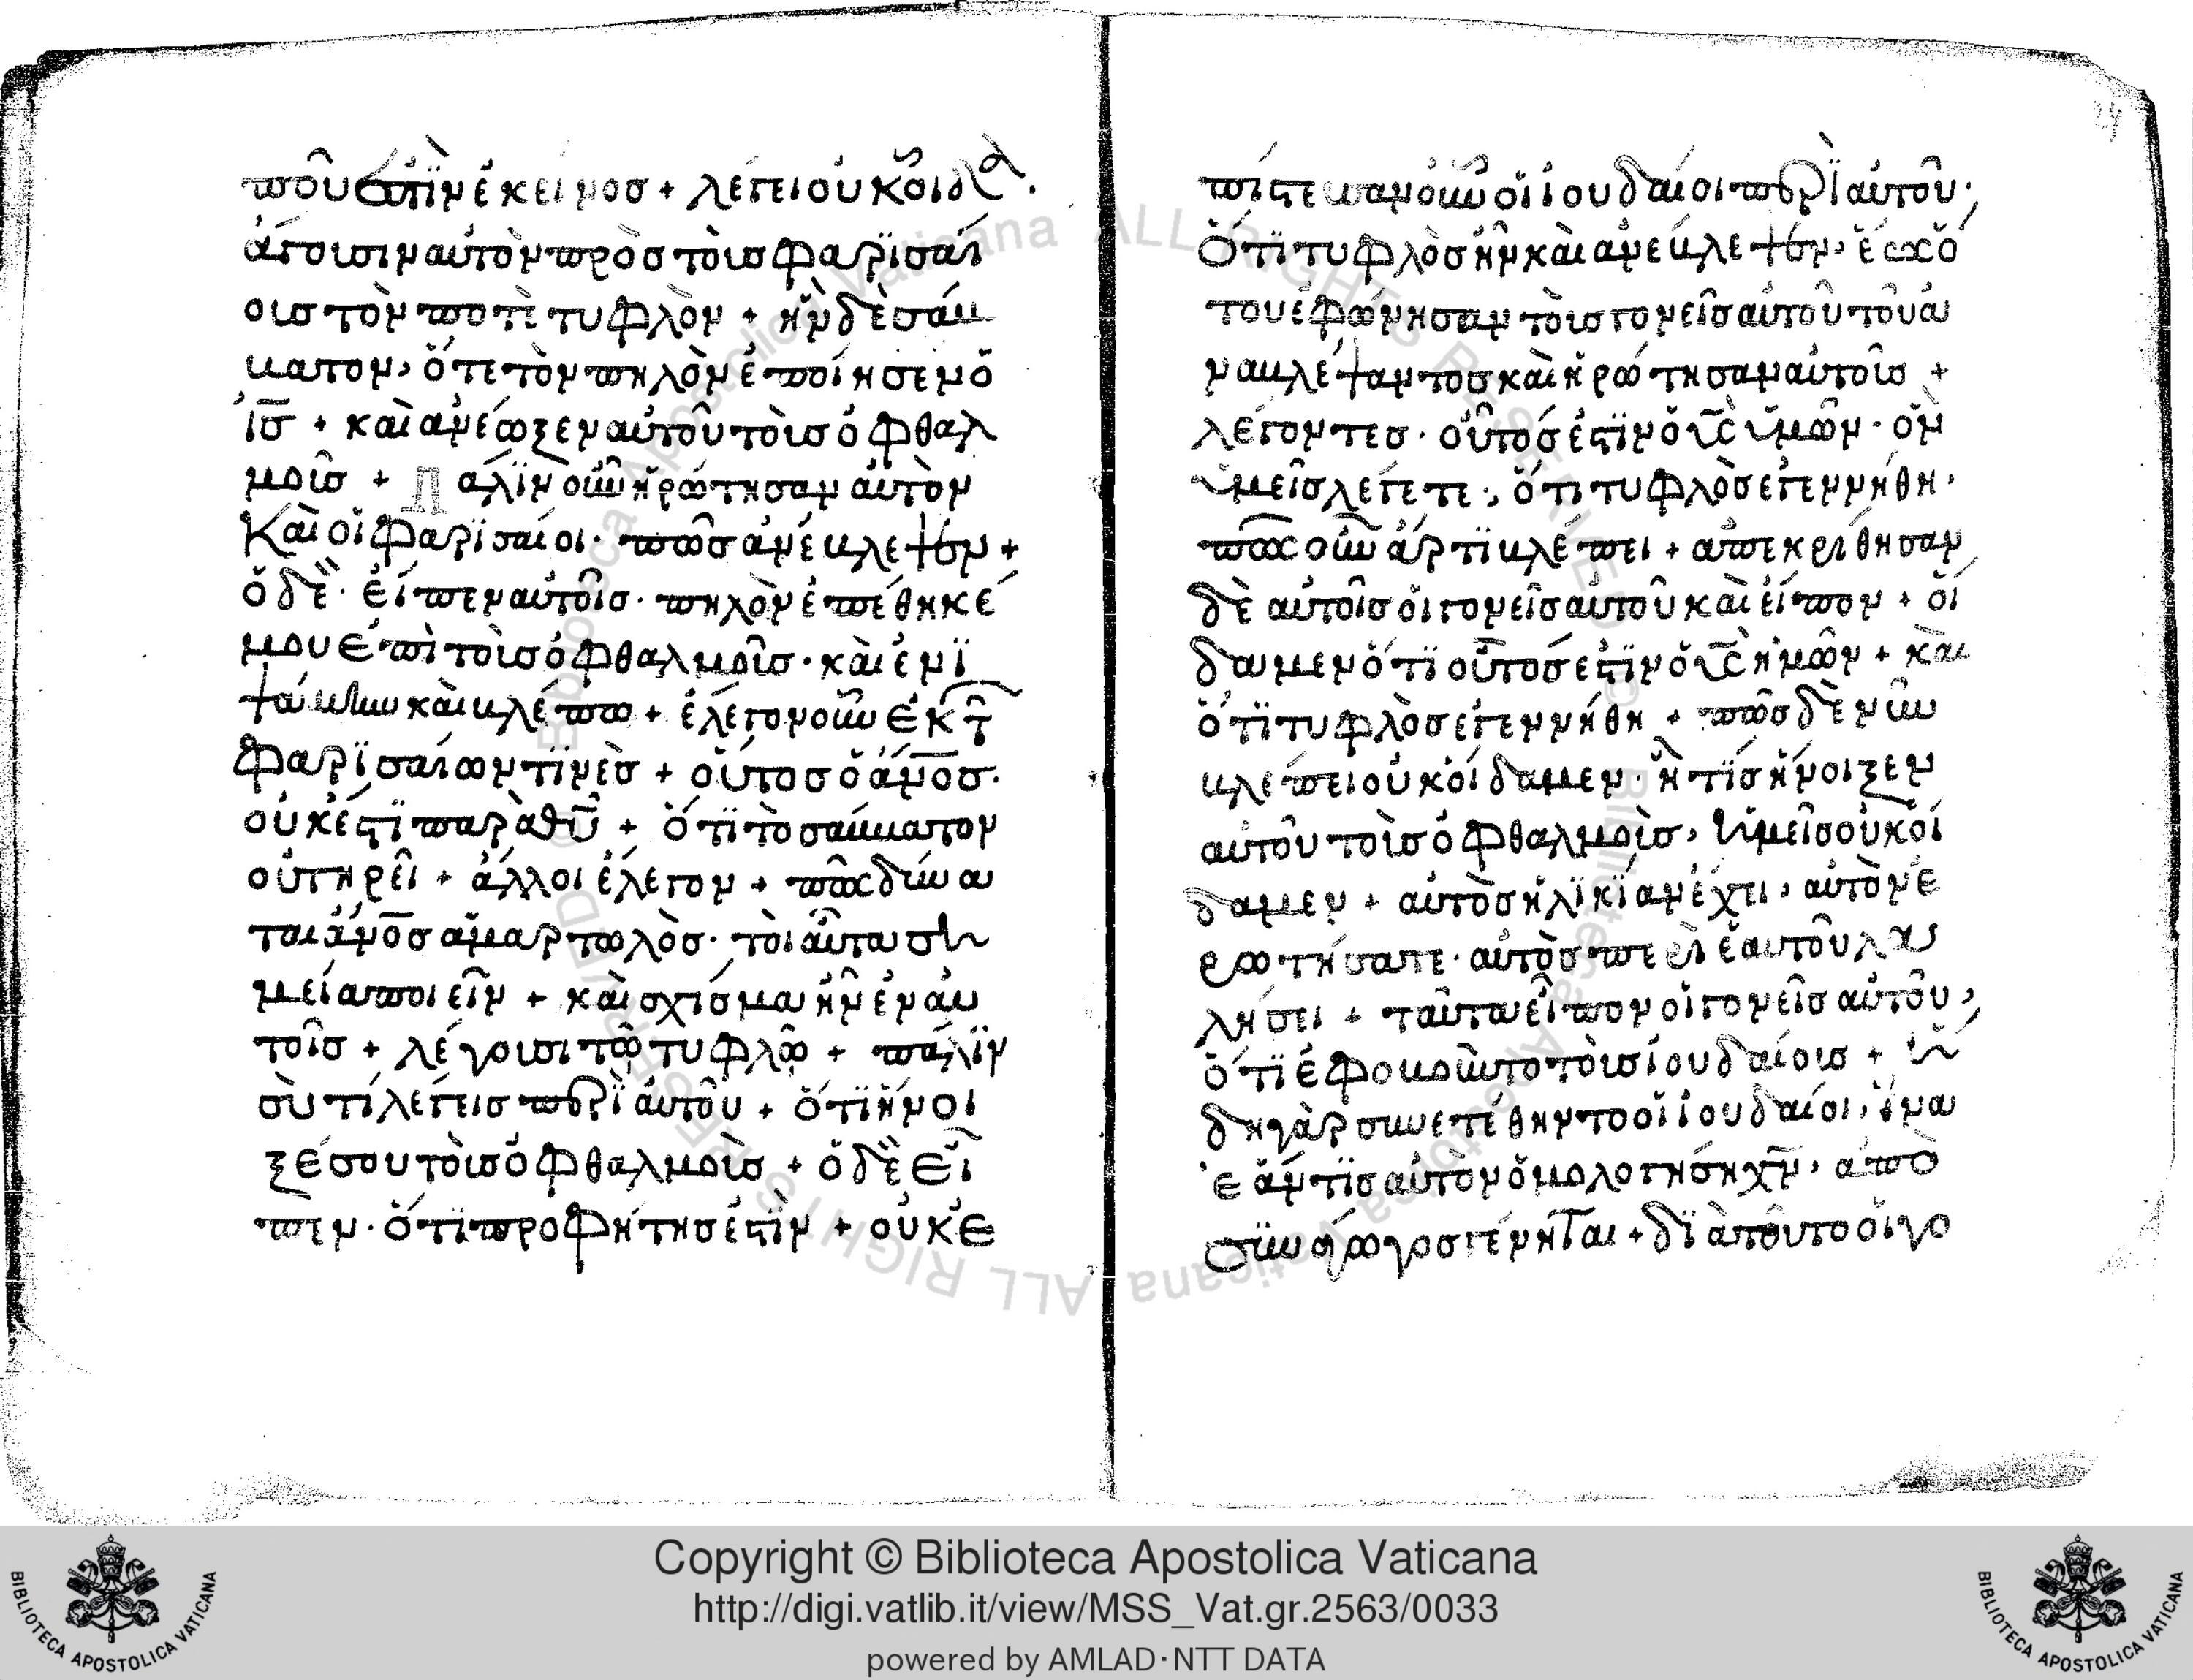 ποῦ ἐστὶν ἐκεῖνος + λέγει οὐκ οἶδα.
ἄγουσιν αὐτὸν πρὸς τοὺς φαρισαί
ους τὸν ποτὲ τυφλὸν + ἦν δὲ σάβ
βατον, ὅτε τὸν πηλὸν ἐποίησεν ὁ
ἰς + καὶ ἀνέωξεν αὐτοῦ τοὺς ὀφθαλ
μοὺς + Πάλιν οὖν ἠρώτησαν αὐτὸν
Καὶ οἱ φαρισαῖοι · πῶς ἀνέβλεψεν +
ὁ δὲ · εἶπεν αὐτοῖς · πηλὸν ἐπέθηκέ
μου ἐπὶ τοὺς ὀφθαλμοὺς · καὶ ἐνι
ψάμην καὶ βλέπω + ἔλεγον οὖν ἐκ τ
φαρισαίων τινὲς + οὗτος ὁ ἄνος ·
οὐκ ἔστι παρὰ θυ + ὅτι τὸ σάββατον
οὐ τηρεῖ + ἄλλοι ἔλεγον + πῶς δύνα
ται ἄνος ἁμαρτωλὸς · τοιαῦτα ση
μεῖα ποιεῖν + καὶ σχίσμα ἦν ἐν αὐ
τοῖς + λέγουσι τῷ τυφλῷ + πάλιν
σὺ τί λέγεις περὶ αὐτοῦ + ὅτι ἤνοι
ξέ σου τοὺς ὀφθαλμοὺς + ὁ δὲ εἶ
πεν · ὅτι προφήτης ἐστὶν + οὐκ ἐ
πίστευσαν οὖν οἱ ἰουδαῖοι περὶ αὐτοῦ ·
ὅτι τυφλὸς ἦν καὶ ἀνέβλεψεν, ἕως ὅ
του ἐφώνησαν τοὺς γονεῖς αὐτοῦ τοῦ ἀ
ναβλέψαντος καὶ ἠρώτησαν αὐτοὺς +
λέγοντες · οὗτός ἐστιν ὁ υς ὑμῶν · ὃν
ὑμεῖς λέγετε ·, ὅτι τυφλὸς ἐγεννήθη ·
πῶς οὖν ἄρτι βλέπει + ἀπεκρίθησαν
δὲ αὐτοῖς οἱ γονεῖς αὐτοῦ καὶ εἶπον + οἴ
δαμεν ὅτι οὗτός ἐστιν ὁ υς ἡμῶν + καὶ
ὅτι τυφλὸς ἐγεννήθη + πῶς δὲ νῦν
βλέπει οὐκ οἴδαμεν · ἢ τίς ἤνοιξεν
αὐτοῦ τοὺς ὀφθαλμοὺς, ὑμεῖς οὐκ οἴ
δαμεν + αὐτὸς ἡλικίαν ἔχει, αὐτὸν ἐ
ρωτήσατε · αὐτὸς περὶ ἑαυτοῦ λα
λήσει + ταῦτα εἶπον οἱ γονεῖς αὐτοῦ,
ὅτι ἐφοβοῦντο τοὺς ἰουδαίους + ἤ
δη γὰρ συνετέθηντο οἱ ἰουδαῖοι, ἵνα
ἐάν τις αὐτὸν ὁμολογήσῃ χν, ἀπο
συνάγωγος γένηται + διὰ τοῦτο οἱ γο
Copyright © Biblioteca Apostolica Vaticana
http://digi.vatlib.it/view/MSS_Vat.gr.2563/0033
powered by AMLAD·NTT DATA